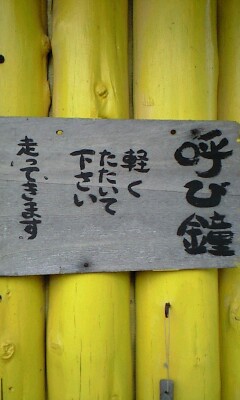 呼び鐘
軽く
たたいて
下さい
走ってきます